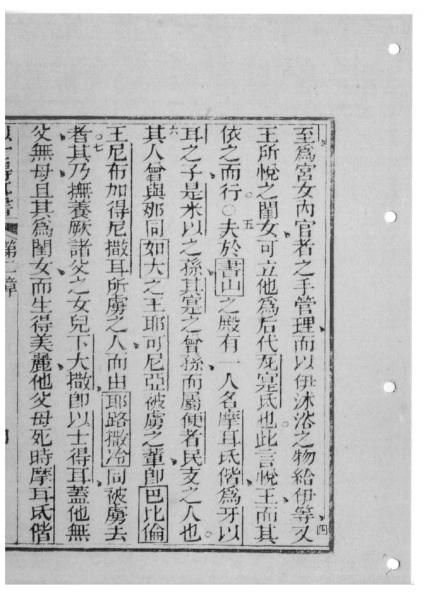 至為宮女內官者之手管理而以伊沐浴之物給伊等又四
王所悅之閨女可立他為后代瓦寔氏也此言悅王而其
依之而行○五夫於書山之殿有一人名摩耳氐偕為牙以
耳之子是米以之孫其寔之曾孫而屬便者民支之人也
六其人曾與那同如大之王耶可尼亞被虜之輩即巴比倫
王尼布加得尼撒耳所虜之人而由耶路撒冷同被虜去
者○七其乃撫養厥諸父之女兒下大撒即以士得耳蓋他無
父無母且其為閨女而生得美麗他父母死時摩耳氐偕
第二章